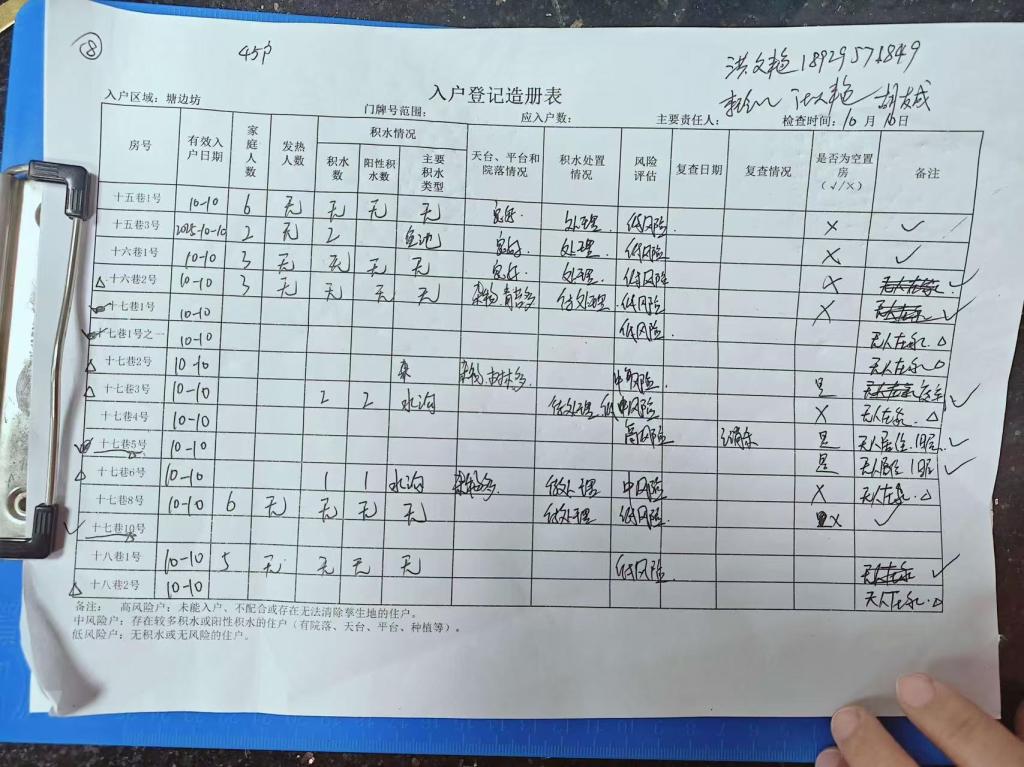 ⑧
45户
洪文艳18929571849
入户登记造册表
胡友成
入户区域：塘边坊 门牌号范围： 应入户数： 主要责任人： 检查时间：10月10日
房号 有效入户日期 家庭人数 发热人数 积水情况 天台、平台和院落情况 积水处置情况 风险评估 复查日期 复查情况 是否为空置房（√/×） 备注
积水数 阳性积水数 主要积水类型
十五巷1号 10-10 6 无 无 无 无 处理 低风险 × ✓
十五巷3号 2025-10-10 2 无 2 处理 低风险 × ✓
十六巷1号 10-10 3 无 无 无 无 处理 低风险 × 无人在家 ✓
△十六巷2号 10-10 3 无 无 无 无 低风险 × 无人在家 ✓
十七巷1号 10-10 低风险 无人在家 △
十七巷1号之一 10-10 无人在家 △
△十七巷2号 10-10 中风险 是 无人在家 ✓
△十七巷3号 10-10 2 2 水沟 中风险 × 无人在家 △
十七巷4号 10-10 高风险 是 无人居住 ✓
十七巷5号 10-10 是 无人居住 ✓
△十七巷6号 10-10 1 1 水沟 中风险 × 无人在家 △
十七巷8号 10-10 6 无 无 无 无 低风险 × ✓
✓十七巷10号
十八巷1号 10-10 5 无 无 无 无 低风险 无人在家 ✓
△十八巷2号 10-10 无人在家 △
备注： 高风险户：未能入户、不配合或存在无法清除孳生地的住户。
中风险户：存在较多积水或阳性积水的住户（有院落、天台、平台、种植等）。
低风险户：无积水或无风险的住户。